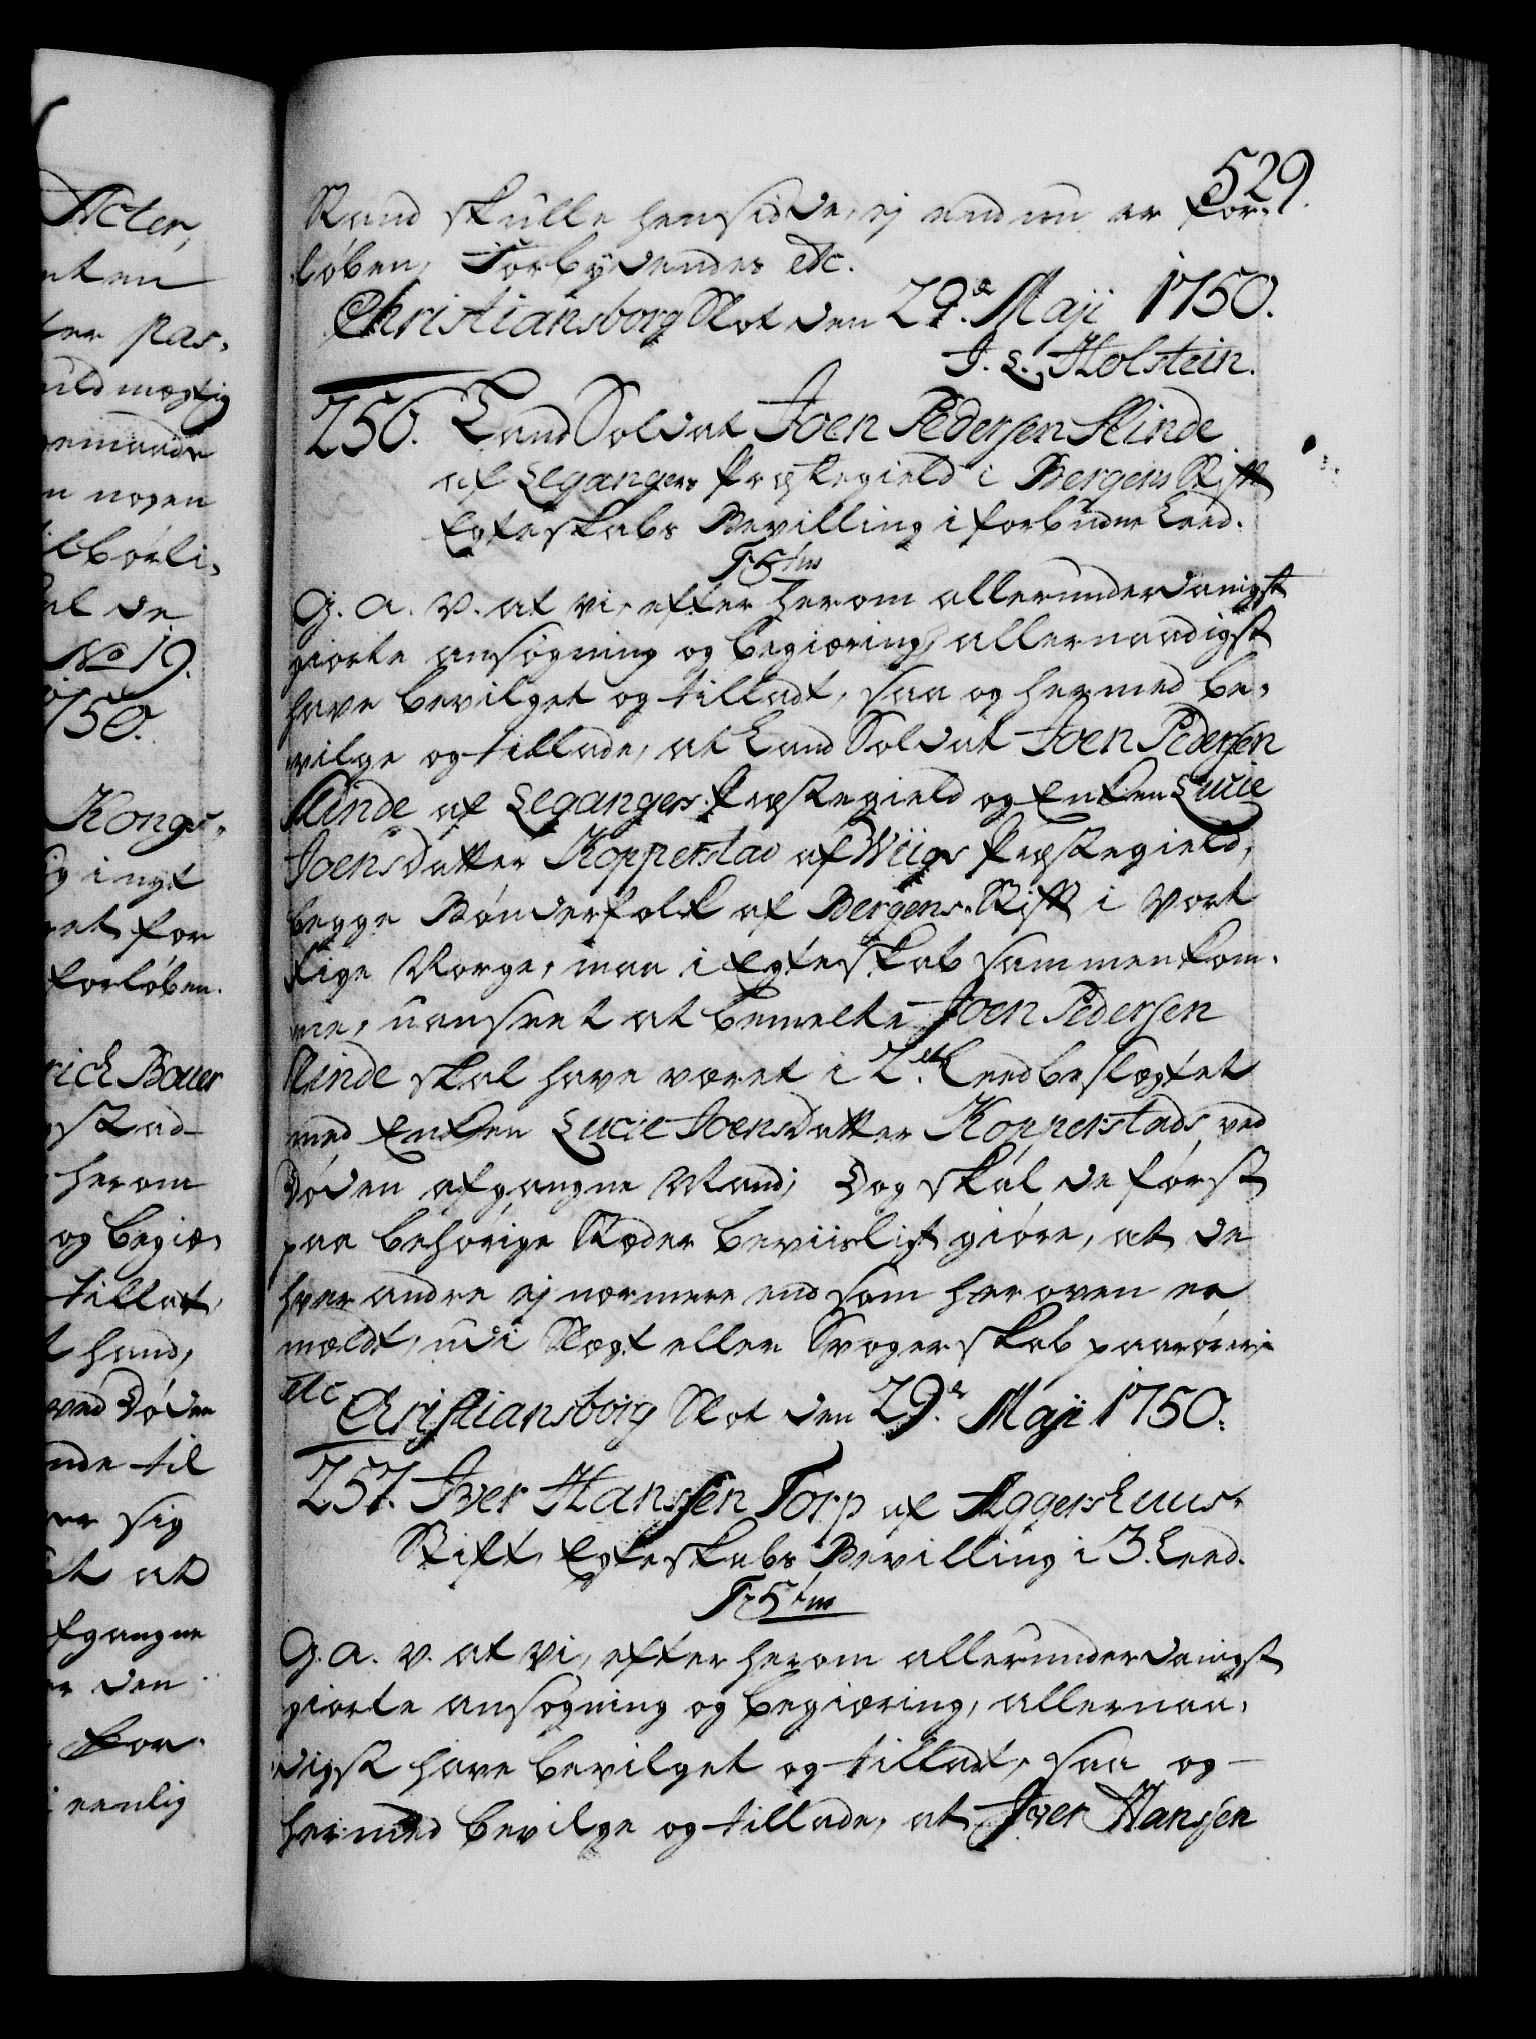 529.
Stand skulle hensidde, ej end nu er for-
løben, Forbydendes etc.
Christiansborg Slot den 29.de Maji 1750.
J. L. Holstein.
256. Land Soldat Joen Pedersen Slinde
af Leganger Præstegield i Bergens Stift
Egteskabs Bevilling i forbudne Leed.
F5tus
G. A. V. at vi, efter herom allerunderdanigst
giorte ansøgning og begiæring, allernaadigst
have bevilget og tilladt, saa og hermed be-
vilge og tillade, at Land Soldat Joen Pedersen
Slinde af Legangers Præstegield og Enken Lucie
Joensdatter Kopperstad af Wiigs Præstegield,
begge Bønderfolk af Bergens Stift i Vort
Rige Norge, maa i Egteskab sammenkom-
me, uanseet at bemelte Joen Pedersen
Slinde skal have været i 2.det Leed beslægtet
med Enken Lucie Joensdatter Kopperstads ved
Døden afgangne Mand; Dog skal de først
paa behørige Stæder beviisligt giøre, at de
hver andre ej nærmere end som her oven er
meldt, udi Slægt eller Svogerskab paarører
etc Christiansborg Slot den 29.de Maji 1750.
257. Iver Hanssen Torp af Aggershuus
Stift, Egteskabs Bevilling i 3. Leed.
F5tus
G. A. V. at vi, efter herom allerunderdanigst
giorte ansøgning og begiæring, allernaa-
digst have bevilget og tilladt, saa og
hermed bevilge og tillade, at Iver Hansen